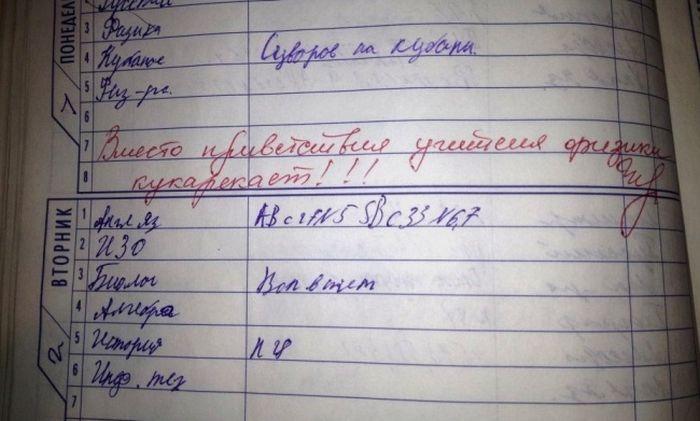 ПОНЕДЕЛ
Русский
3 Физика
4 Кубанов Суворов на кубани.
5 Физ-ра.
6
7 Вместо приветствия учителя физики
8 кукарекает!!!
ВТОРНИК
1 Англ яз АВ с 27 N5 SB с 33 N6,7
2 ИЗО
3 Биолог Воп в тет
4 Алгебра
5 История п 4
6 Инф. тех
7
7
2